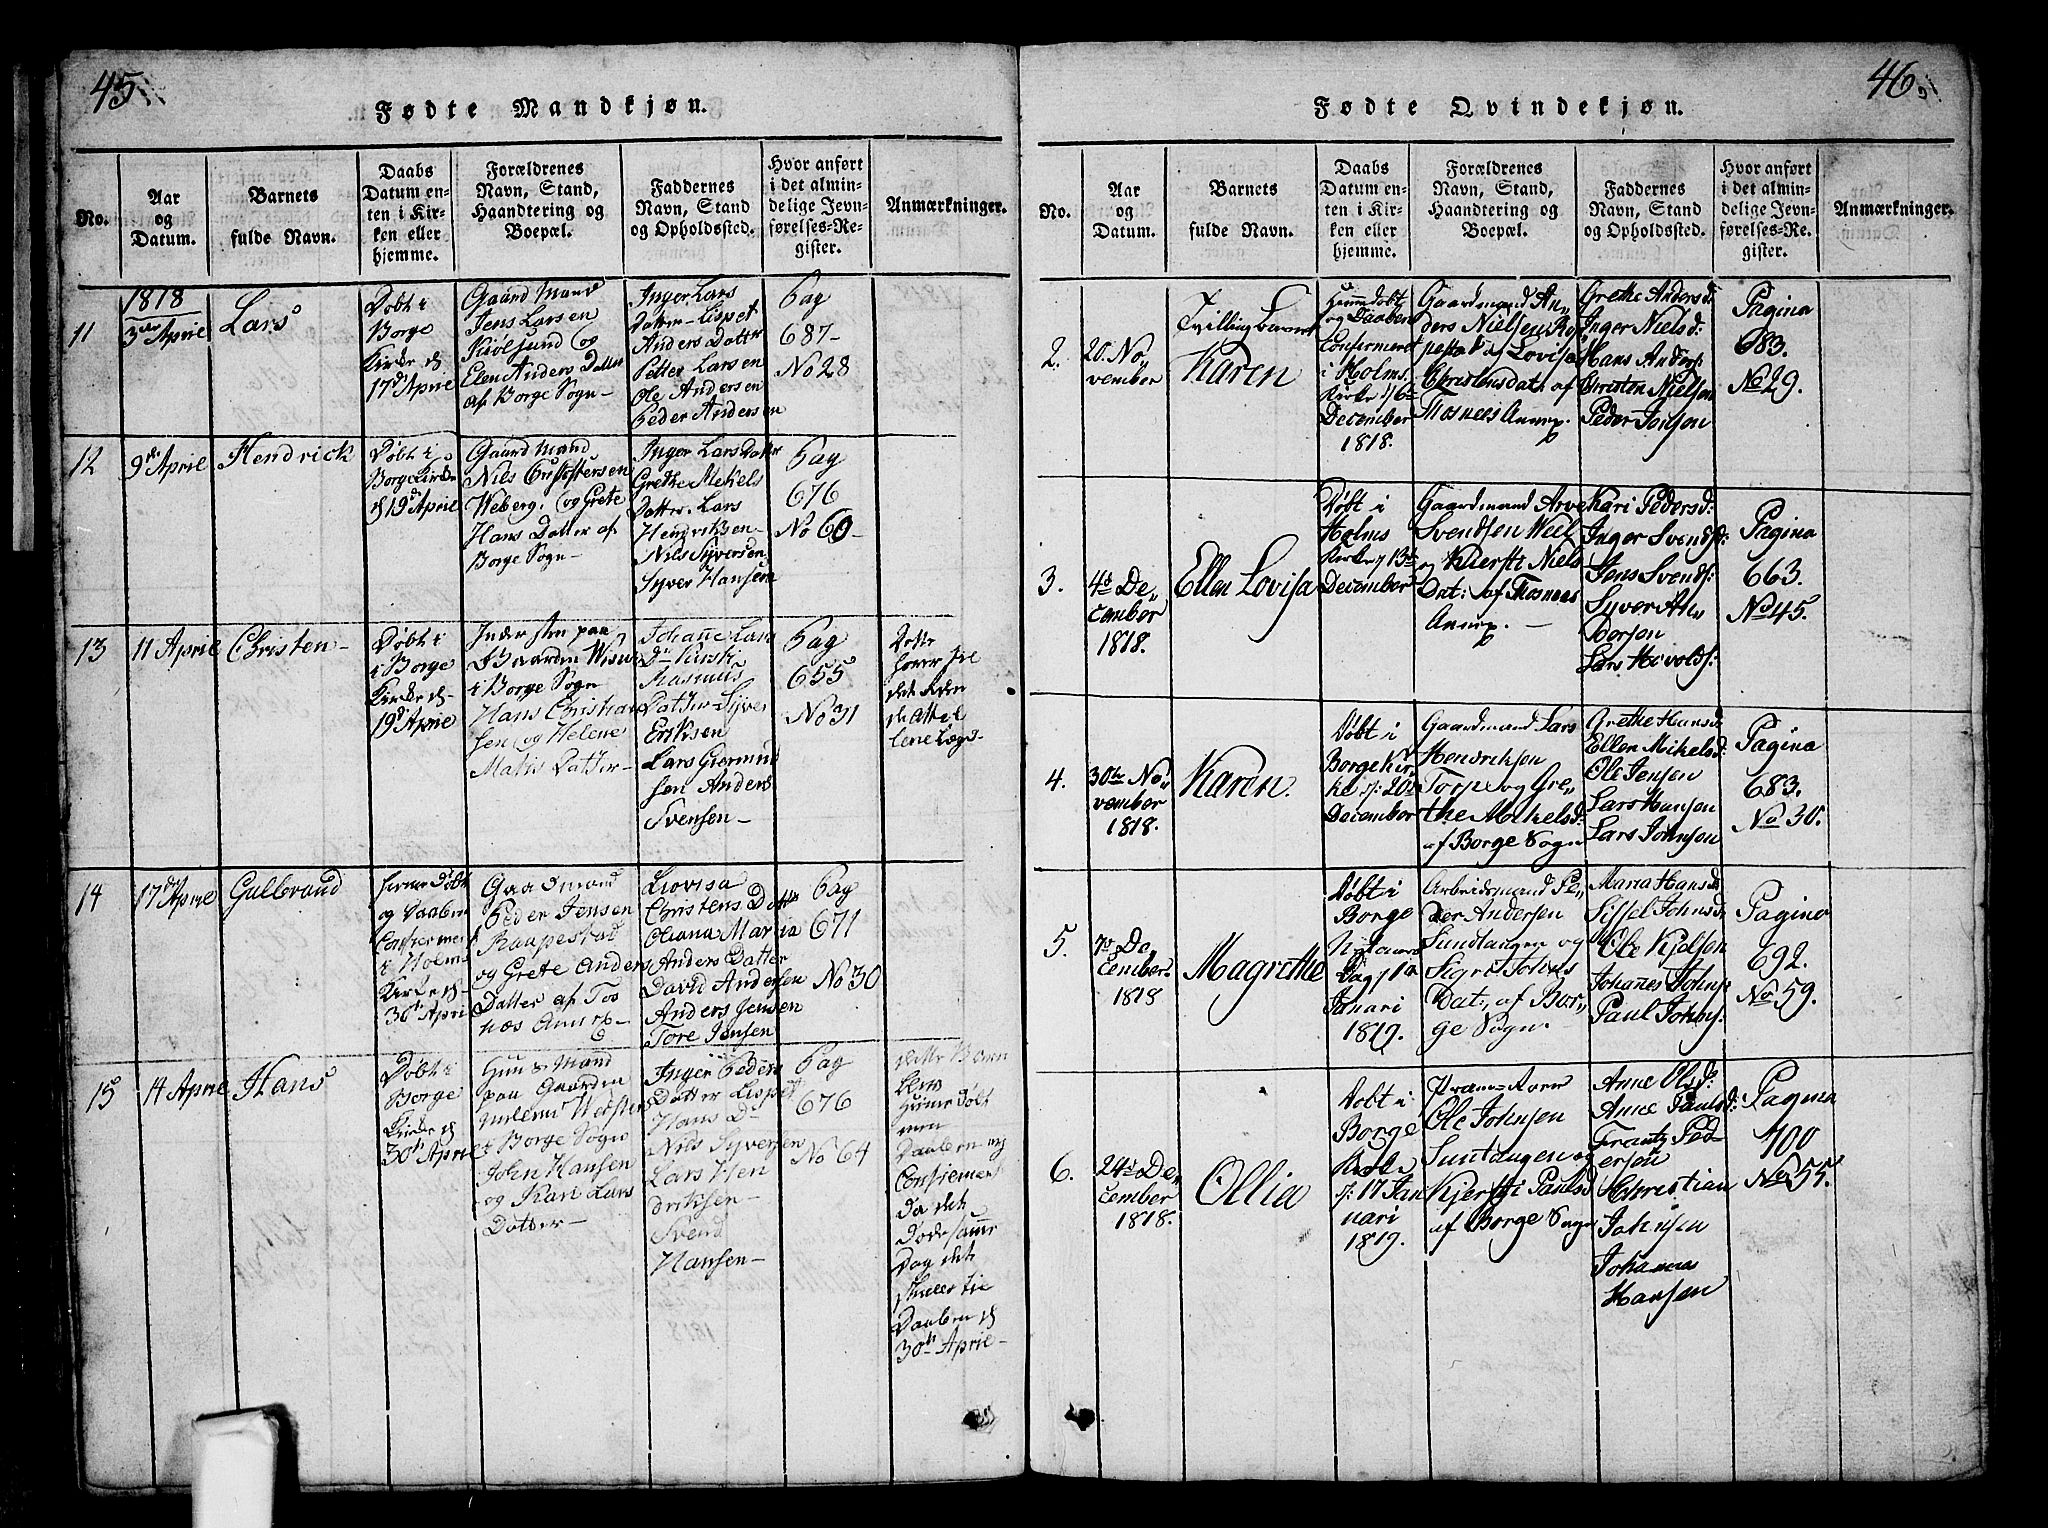 45
Fødte Mandkjøn.
No.
Aar
og
Datum.
Barnets
fulde Navn.
Daabs
Datum en-
ten i Kir-
ken eller
hjemme.
Forældrenes
Navn, Stand,
Haandtering og
Boepæl.
Faddernes
Navn, Stand
og Opholdssted.
Hvor anført
i det almin-
delige Jevn-
førelses-Re-
gister.
Anmærkninger.
11
1818
3die Aprile
Lars
Døbt i
Borge
Kirke d
17d Aprie
Gaard Mand
Jens Larsen
og
Elen Anders Datter
af Borge Sogn-
Inger Lars
Datter- Lispet
Anders Datter
Petter Larsen
Ole Andersen
Peder Andersen
Pag
687-
No 28
12
9de Aprile
Hendrick
Døbt i
Borge Kirke
d 19 Aprie
Gaard Mand
Nils
Weberg. og Grete
Hans Datter af
Borge Sogn-
Inger Lars Datter
Grethe Mekels
Datter. Lars
Hendriksen-
Nils Syversen
Syver Hansen
Pag
676
No 60-
13
11 Aprile
Christen-
Døbt i
i Borge
Kirke d-
19d Aprie
Indersten paa
Gaarden
i Borge Sogn
Hans Christian
sen og Helene
Datter-
Johanne Lars
Dr
Rasmus
Datter- Syver
Eriksen
Lars Giermund
sen Anders
Svensen-
Pag
655
No 31
Dette
hører
det
14
17de Aprie
Gulbrand
hiemedøbt
og Daaben
Confiermert
i Holms
Kirke d-
30d Apri
Gaadmand
Peder Jensen
Raapestad
og Grete Anders
Datter af Tos
næs Annex-
Liovisa
Christens Datter
Oliana Maria
Anders Datter
David Andersen
Anders Jensen
Tore Jensen
Pag
671
No 30
15
14 Aprie
Hans
Døbt i
Borge
Kirke d
30d Aprie
Huus Mand
paa Gaarden
i Borge Sogn
John Hansen
og Kari Lars
Datter-
Inger Peders
Datter Lispet
Hans Dr
Nils Syversen
Lars Hen
driksen-
Svend
Hansen-
Pag
676
No 64
dette Barn
blev
hieme Døbt
men
Daaben og
Confiermert
da det
Døde samme
Dag det
skulle til
Daaben d
30d Aprie-
46.
Fødte Qvindekjøn.
No.
Aar
og
Datum.
Barnets
fulde Navn.
Daabs
Datum en-
ten i Kir-
ken eller
hjemme.
Forældrenes
Navn, Stand,
Haandtering og
Boepæl.
Faddernes
Navn, Stand
og Opholdssted.
Hvor anført
i det almin-
delige Jevn-
førelses-Re-
gister.
Anmærkninger.
2.
20. No„
vember
Tvilling barnet
Karen
Hjemdøbt
og Daaben
Confirmeret
i Holms
Kirke d 6te
December
1818.
Gaardmand An„
ders Nielsen
Lovisa
Christensdatr af
Thosnees Annex
Grethe Andersd:
Inger Nielsd:
Hans Anders:
Christen Nielsen
Peder Jensen
Pagina
683.
No 29.
3.
4de De„
cember
1818.
Ellen Lovisa
Døbt i
Holms
Kirke d 13de
December
Gaardmand Arve
Svendsen Weel
og Kiersti Niels
Dat: af Thosnees
Annex. -
Kari Pedersd:
Inger Svendsd:
Jens Svends:
Syver An„
dersen
Lars
Pagina
663.
No 45.
4.
30te No„
vember
1818.
Karen.
Døbt i
Borge Kir„
ke d: 20de
December
Gaardmand Lars
Hendriksen
Torp og Gre„
the Mikelsd:
af Borge Sogn
Grethe Hansd
Ellen Mikelsd:
Ole Jensen
Lars Hansen
Lars Johnsen
Pagina
683.
No 30.
5.
7de De„
cember.
1818
Magrethe
Døbt i
Borge
Nytaars
Dag d 1ste
Januari
1819.
Arbeidsmand Pe„
der Andersen
Sundtangen og
Sigri Johns
Dat:, af Bor„
ge Sogn-
Maria Hansd
Sissel Johnsd:
Ole Kjelsen
Johannes Johns:
Paul Johns:
Pagina
692.
No 59.
6.
24de De„
cember
1818.
Ollia
Døbt i:
Borge
Kirke
d: 17 Jan
nuari
1819.
Ole Johnsen
Suntangen og
Kjersti Paulsd
af Borge Sogn
Anne Olsd:
Anne Paulsd:
Frantz Ped„
ersen
Christian
Johnsen
Johannes
Hansen
Pagina
700
No 55.